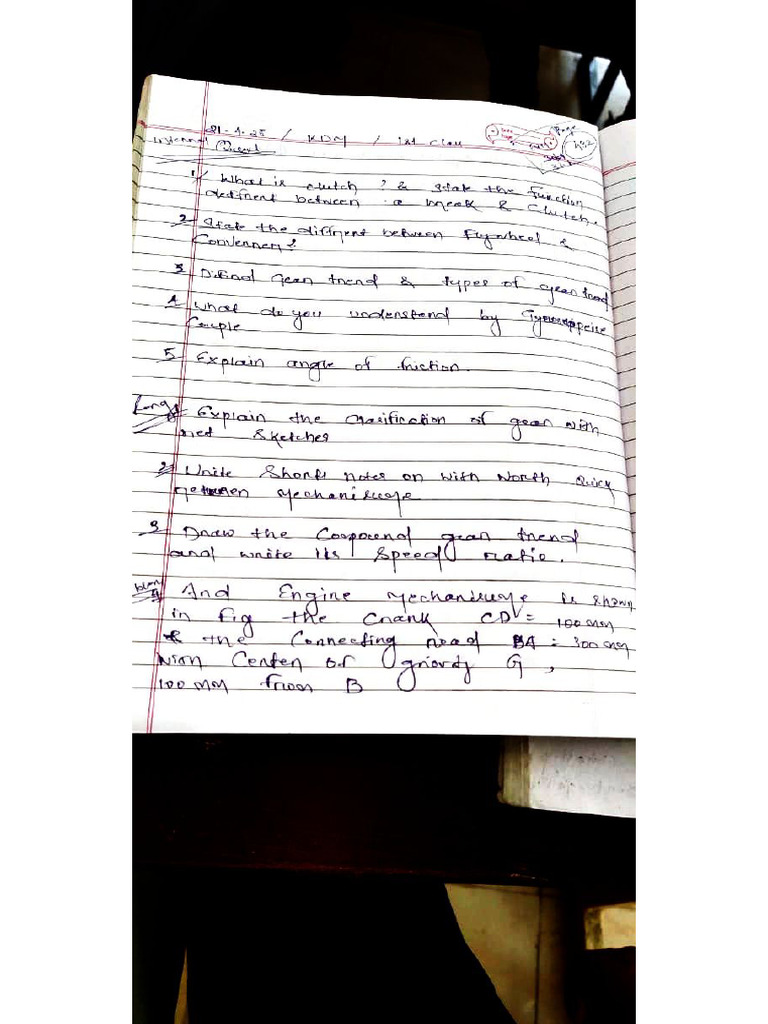 21.1.25 / KDM / 1st Class
Internal
1 What is clutch ? & state the function
different between a break & Clutch.
2 State the diffrent between Flywheel &
3 Difind Gear trend & types of gear trend
4 What do you understand by
Couple
5 Explain angle of friction.
Long Explain the Clasification of gear with
net sketches
2 Write Short notes on with Worth Quick
mechanisum
3 Draw the Coopound gear trend
and write its speed ratio.
4 And Engine mechanisum is shown
in fig the Crank CD = 100 mm
& the Connecting road BA = 300 mm
with Center of G,
100 mm from B